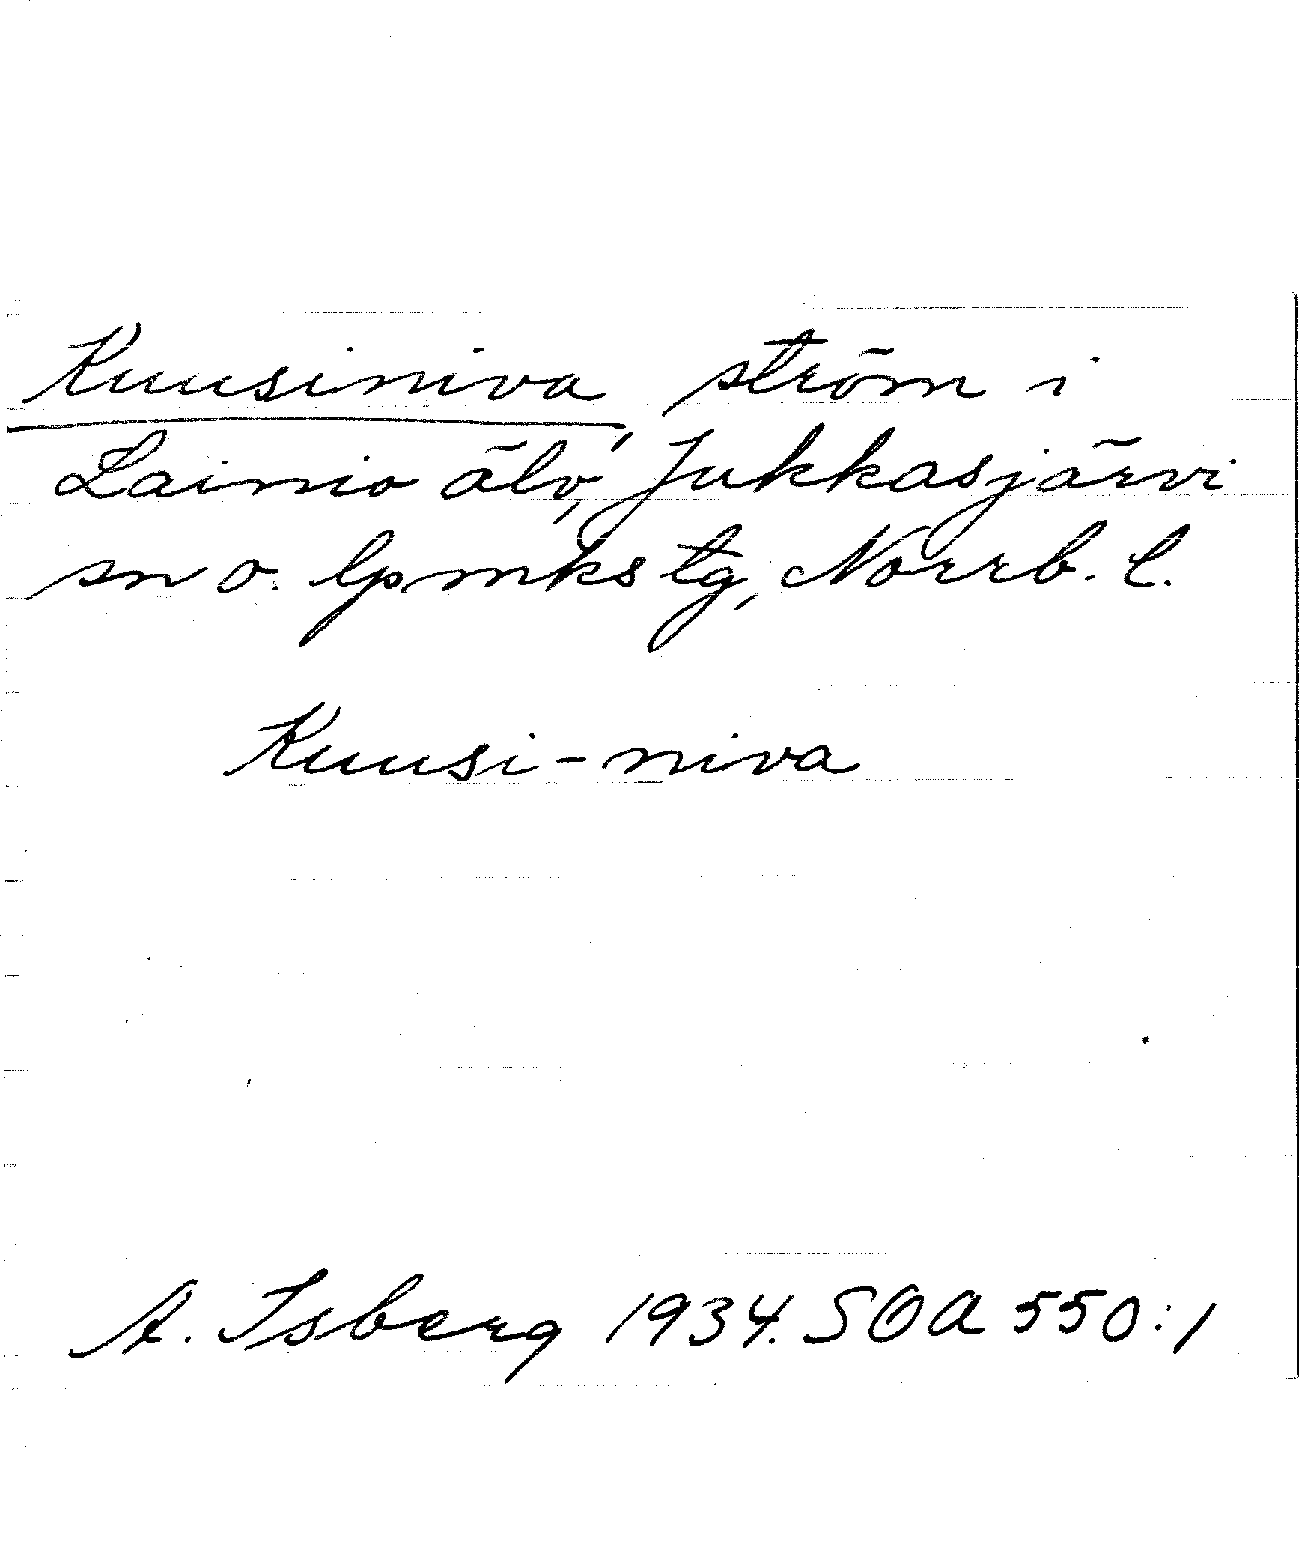 Kuusiniva, ström i
Lainio älv, Jukkasjärvi
sn o. lpmks tg, Norrb. l.
Kuusi-niva
A. Isberg 1934. SOA 550:1